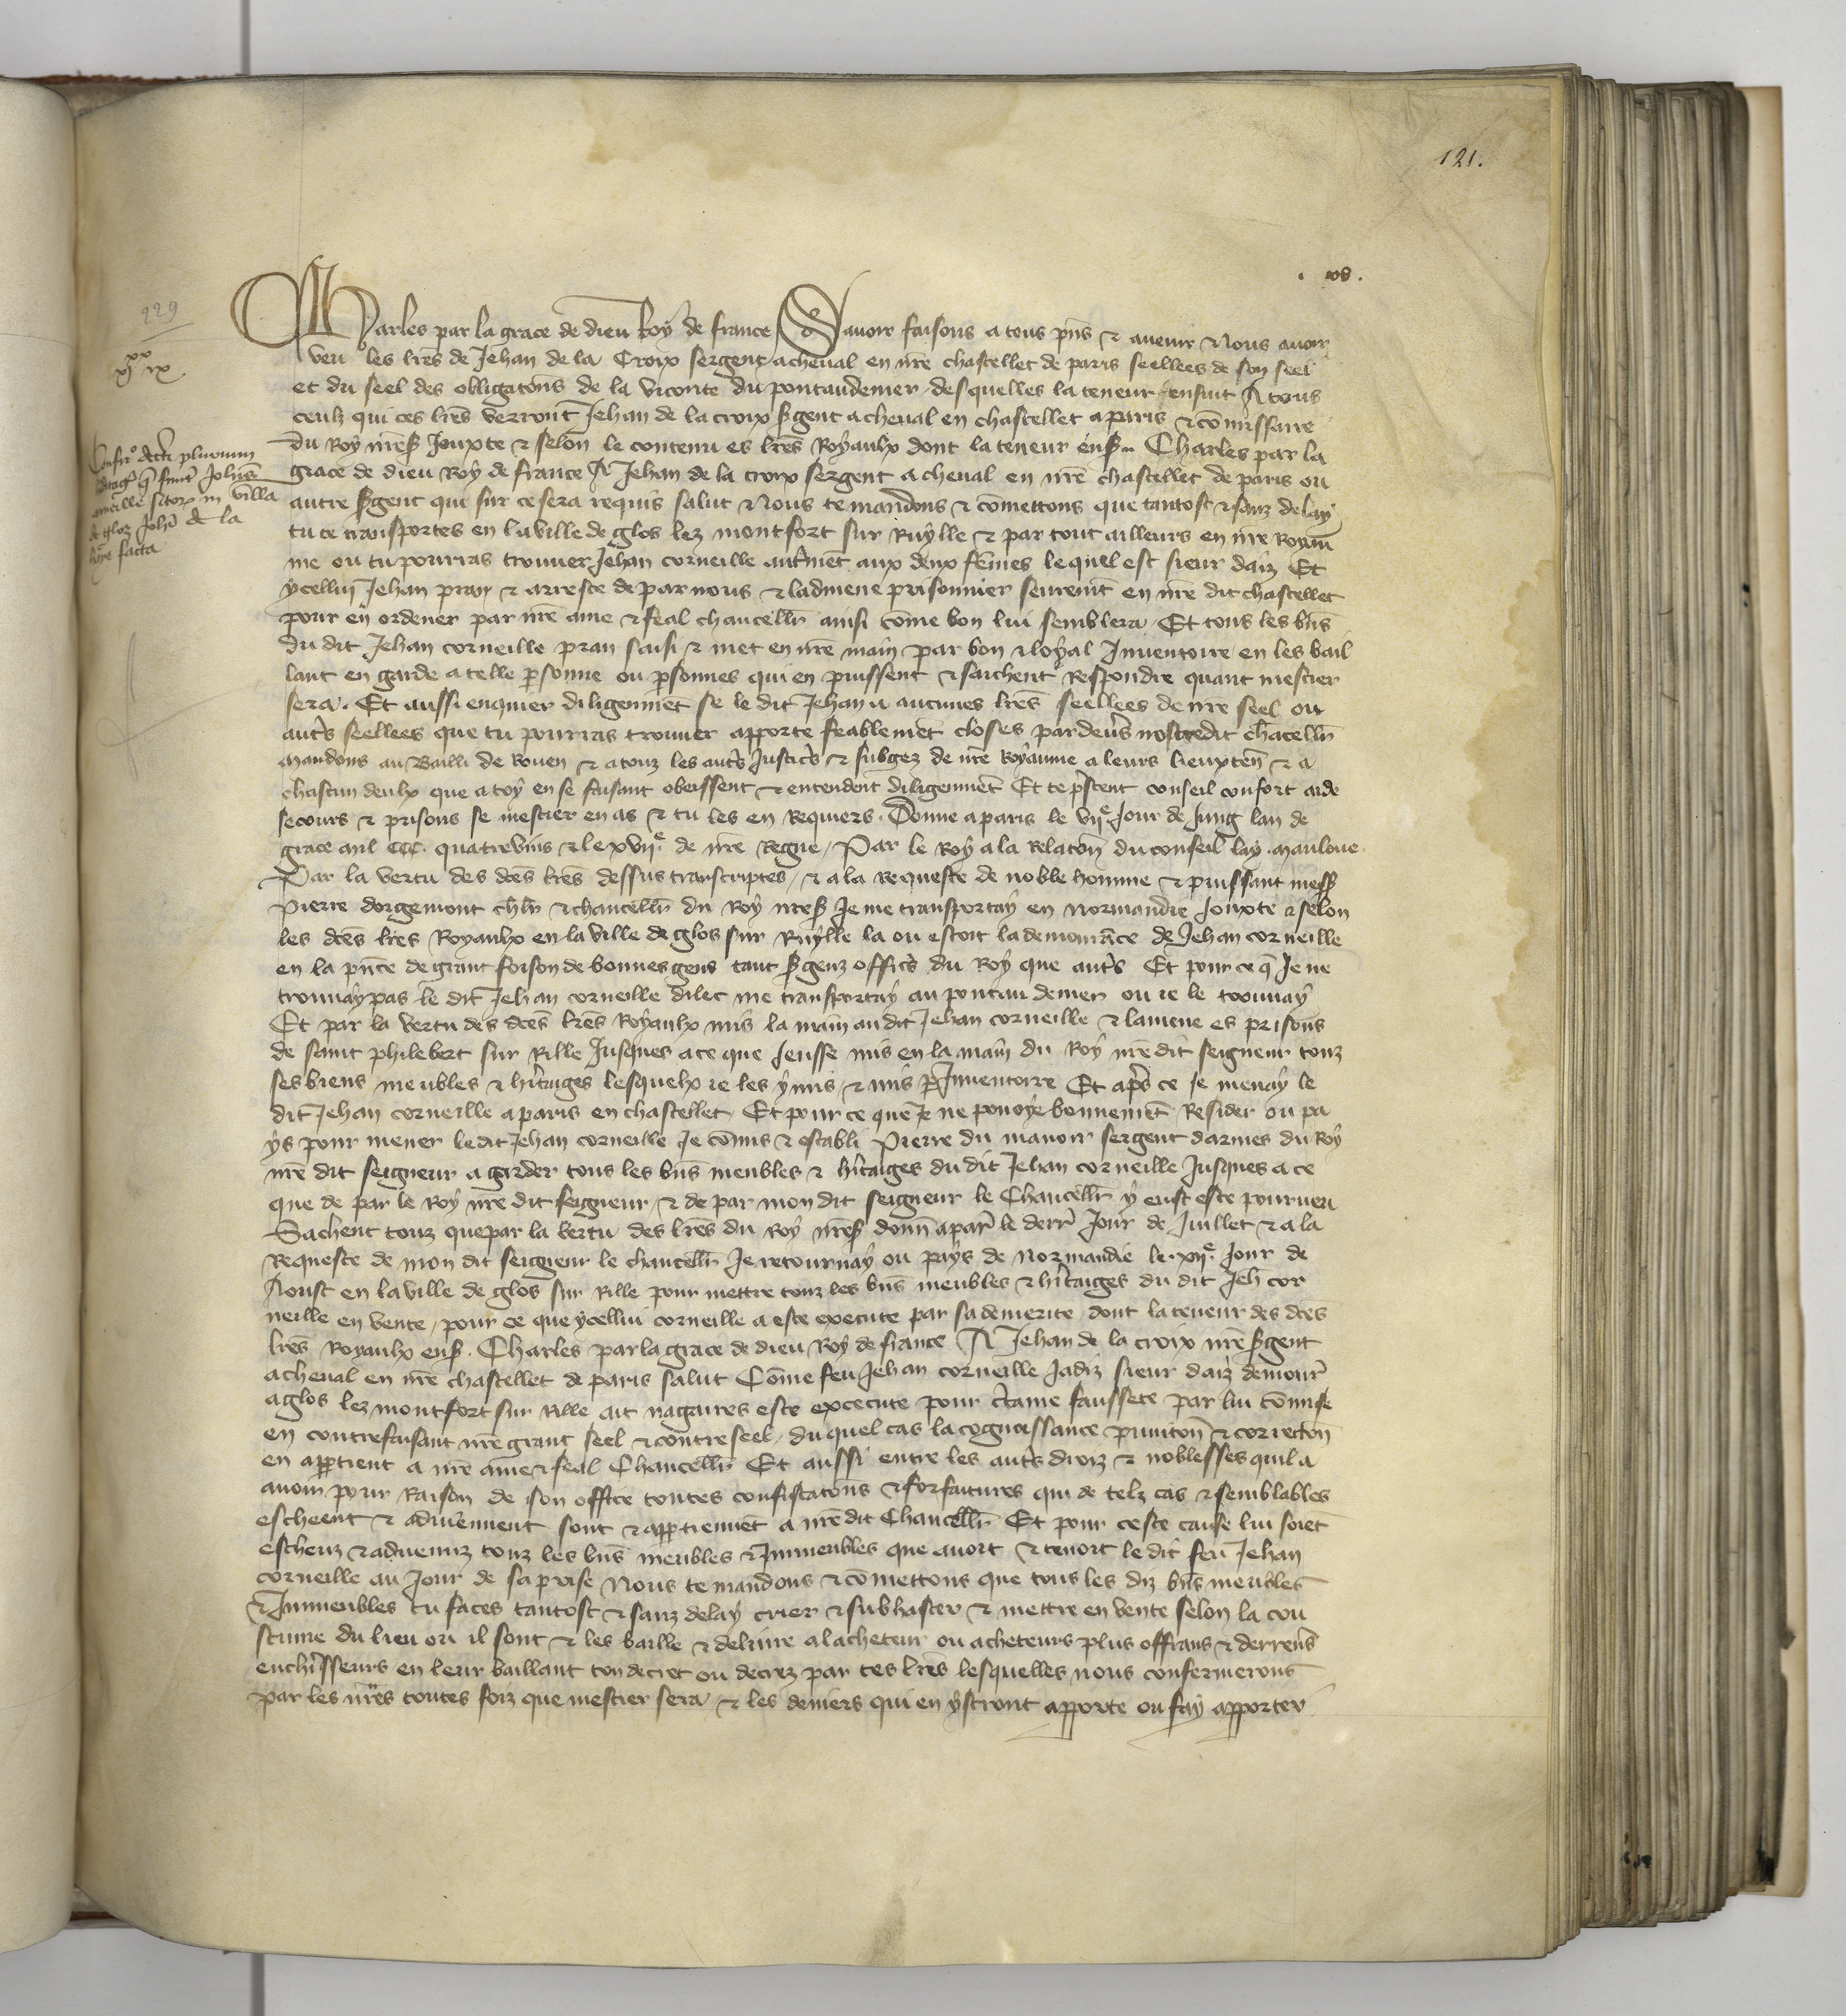 121.
229
xx
xj ix
Charles par la grace de dieu Roy de france Savoir faisons a tous pñs & avenir Nous avoir
veu les lres de Jehan de la Croix sergent a cheval en nre chastellet de paris seellees de son seel
et du seel des obligatõns de la viconte du pontaudemer desquelles la teneur ensuit A tous
ceulz qui ces lres verront Jehan de la croix sgent a cheval en chastellet a paris & cõmissaire
du Roy nres Jouxte & selon le contenu es lres Royaulx dont la teneur ens Charles par la
grace de dieu Roy de france A Jehan de la croix sergent a cheval en nre chastellet de paris ou
autre sgent qui sur ce sera requis salut Nous te mandons & cõmettons que tantost & sanz delay
tu te transportes en la ville de glos lez montfort sur Rylle & par tout ailleurs en nre Royau
me ou tu pourras trouver Jehan corneille autmẽt aux deux fẽmes lequel est sieur daiz Et
ycellui Jehan pran & arreste de par nous & ladmene prisonnier seuremẽt en nre dit chastellet
pour en ordener par nre ame & feal chancellr ainsi cõme bon lui semblera Et tous les bñs
du dit Jehan corneille pran saisi & met en nre main par bon & loyal Inventoire en les bail
lant en garde a telle psonne ou psonnes qui en puissent & saichent Respondre quant mestier
sera. Et aussi enquier diligemmẽt se le dit Jehan a aucunes lres seellees de nre seel ou
auts seellees que tu pourras trouver apporte feablemẽt closes pardevs nostredit chãcellr
Mandons au Bailli de Rouen & a touz les auts Justics & subgez de nre Royaume a leurs lieuxteñ & a
chascun deulx que a toy en ce faisant obeissent & entendent diligemmẽt Et te pstent conseil confort aide
secours & prisons se mestier en as & tu les en Requiers. Donne a paris le vije Jour de Juing lan de
grace mil CCC. quatrevins & le xvije de nre Regne. Par le Roy a la Relatõn du conseil lay. Mauloue
Par la vertu des dẽes lres dessus transcriptes, & a la requeste de noble homme & puissant mess
Pierre dorgemont chlr & chancellr du Roy nres Je me transportay en Normandie Jouxte & selon
les dẽes lres Royaulx en la ville de glos sur Rylle la ou estoit la demourãce de Jehan corneille
en la pñce de grant foison de bonnes gens tant sgenz offics du Roy que auts Et pour ce q Je ne
trouvay pas le dit Jehan corneille dilec me transportay au pontaudemer ou ie le trouvay
Et par la vertu des dẽes lres Royaulx mis la main au dit Jehan corneille & lamene es prisons
de saint philebert sur Rille Jusques a ce que Jeusse mis en la main du Roy nre dit seigneur touz
ses biens meubles & hitaiges lesquelx ie les y mis & mis p Inventoire Et aps ce Je menay le
dit Jehan corneille a paris en chastellet Et pour ce que Je ne povoye bonnemẽt Resider ou pa
ys pour mener le dit Jehan corneille Je cõmis & establi Pierre du manoir sergent darmes du Roy
nre dit seigneur a garder tous les bñs meubles & hitaiges du dit Jehan corneille Jusques a ce
que de par le Roy nre dit seigneur & de par mon dit seigneur le Chancellr y eust este pourveu
Sachent touz que par la vertu des lres du Roy nres donñ a par le derr Jour de Juillet & a la
Requeste de mon dit seigneur le chancellr Je retournay ou pays de Normandie le xije Jour de
Aoust en la ville de glos sur Rille pour mettre touz les bñs meubles & hitaiges du dit Jeh cor
neille en vente, pour ce que ycellui corneille a este execute par sa demerite dont la teneur des dẽes
lres Royaulx ens. Charles par la grace de dieu Roy de france A Jehan de la croix nre sgent
a cheval en nre chastellet de paris salut Cõme feu Jehan corneille Jadiz sieur daiz demour
a glos lez montfort sur Rille ait nagaires este excecute pour ctaine faussete par lui cõmise
en contrefaisant nre grant seel & contreseel, du quel cas la cognoissance punitõn & correctõn
en appttient a nre ame & feal Chancellr Et aussi entre les auts droiz & noblesses quil a
avom pour Raison de son office toutes confiscatõns & forfaitures qui de telz cas & semblables
escheent & adviennent sont & apptiennẽt a nre dit Chancellr Et pour ceste cause lui soiet
escheuz & advenuz touz les bñs meubles & Immeubles que avoit & tenoit le dit feu Jehan
corneille au Jour de sa prise Nous te mandons & cõmettons que tous les diz bñs meubles
& Immeubles tu faces tantost & sanz delay crier & subhaster & mettre en vente selon la cou
stume du lieu ou il sont & les baille & delivre a lacheteur ou acheteurs plus offrans & derrens
enchisseurs en leur baillant ton decret ou decrez par tes lres lesquelles nous confermerons
par les nres toutes foiz que mestier sera, & les deniers qui en ystront apporte ou fay apporter
Confiro decti plurium
hitag q fuert Johnis
corneille sitor in villa
de gloz Johi de la
hae facta